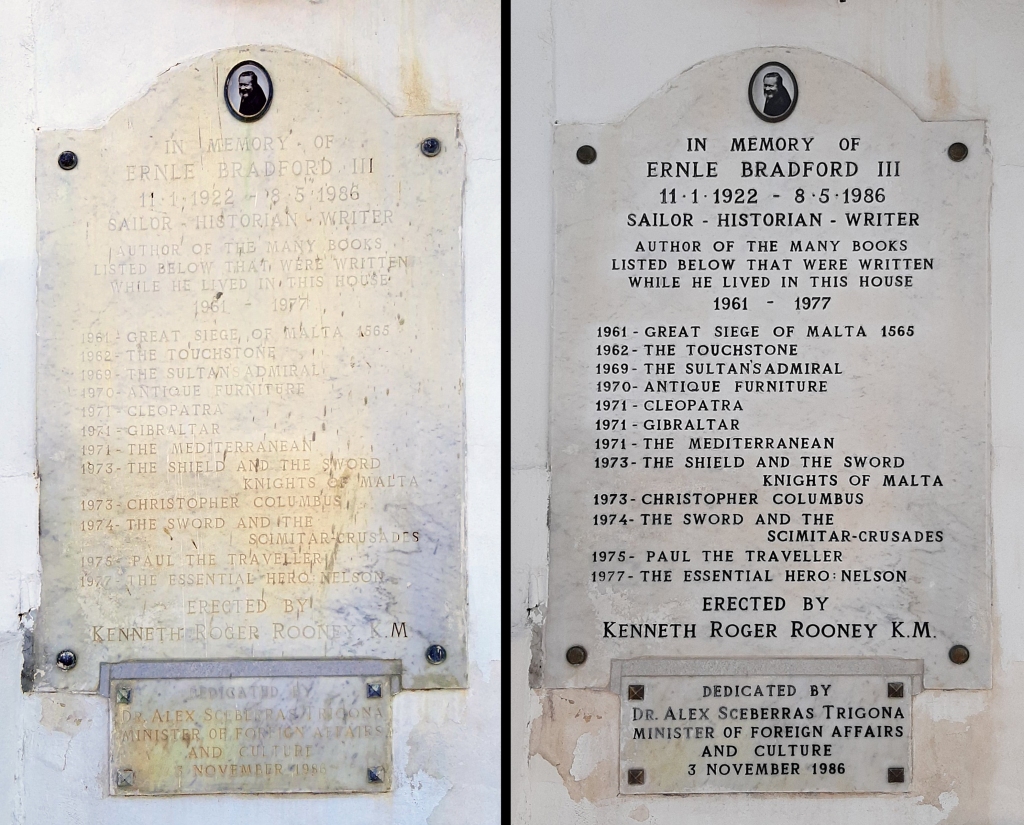 IN MEMORY OF
ERNLE BRADFORD III
11·1·1922 - 8·5·1986
SAILOR - HISTORIAN - WRITER
AUTHOR OF THE MANY BOOKS
LISTED BELOW THAT WERE WRITTEN
WHILE HE LIVED IN THIS HOUSE
1961 - 1977
1961 - GREAT SIEGE OF MALTA 1565
1962 - THE TOUCHSTONE
1969 - THE SULTAN'S ADMIRAL
1970 - ANTIQUE FURNITURE
1971 - CLEOPATRA
1971 - GIBRALTAR
1971 - THE MEDITERRANEAN
1973 - THE SHIELD AND THE SWORD
KNIGHTS OF MALTA
1973 - CHRISTOPHER COLUMBUS
1974 - THE SWORD AND THE
SCIMITAR-CRUSADES
1975 - PAUL THE TRAVELLER
1977 - THE ESSENTIAL HERO: NELSON
ERECTED BY
KENNETH ROGER ROONEY K.M
DEDICATED BY
DR. ALEX SCEBERRAS TRIGONA
MINISTER OF FOREIGN AFFAIRS
AND CULTURE
3 NOVEMBER 1986
IN MEMORY OF
ERNLE BRADFORD III
11·1·1922 - 8·5·1986
SAILOR - HISTORIAN - WRITER
AUTHOR OF THE MANY BOOKS
LISTED BELOW THAT WERE WRITTEN
WHILE HE LIVED IN THIS HOUSE
1961 - 1977
1961 - GREAT SIEGE OF MALTA 1565
1962 - THE TOUCHSTONE
1969 - THE SULTAN'S ADMIRAL
1970 - ANTIQUE FURNITURE
1971 - CLEOPATRA
1971 - GIBRALTAR
1971 - THE MEDITERRANEAN
1973 - THE SHIELD AND THE SWORD
KNIGHTS OF MALTA
1973 - CHRISTOPHER COLUMBUS
1974 - THE SWORD AND THE
SCIMITAR-CRUSADES
1975 - PAUL THE TRAVELLER
1977 - THE ESSENTIAL HERO: NELSON
ERECTED BY
KENNETH ROGER ROONEY K.M.
DEDICATED BY
DR. ALEX SCEBERRAS TRIGONA
MINISTER OF FOREIGN AFFAIRS
AND CULTURE
3 NOVEMBER 1986